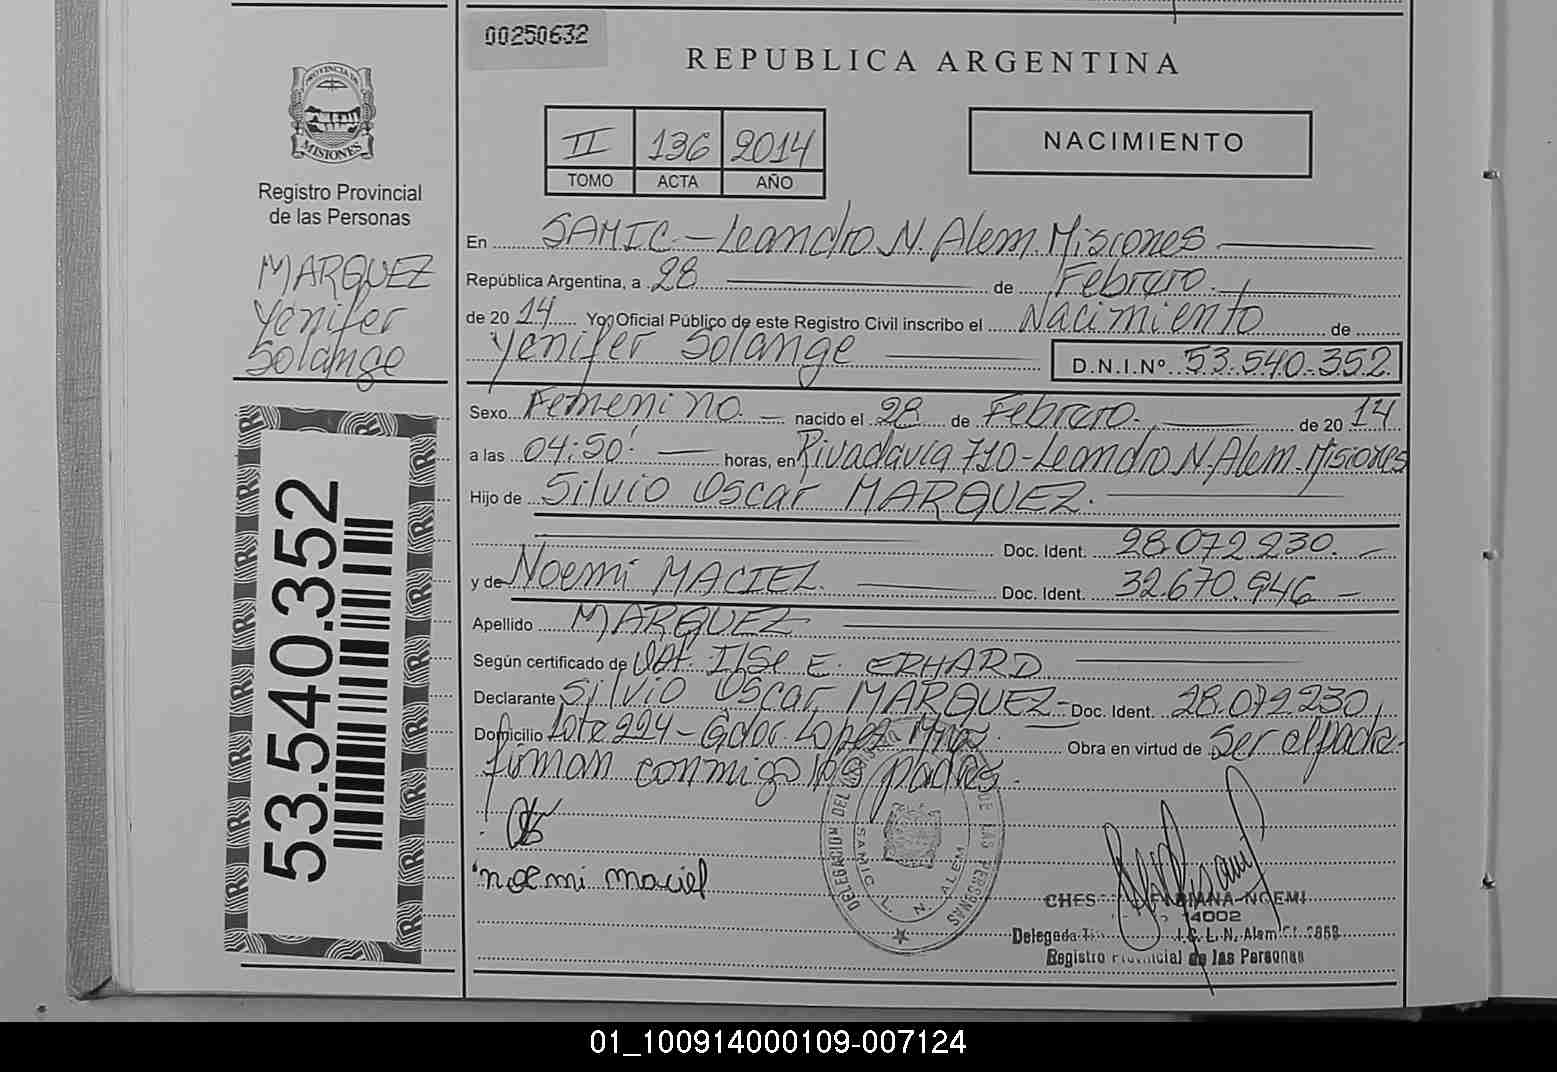 00250632
REPUBLICA ARGENTINA
PROVINCIA DE
MISIONES
Registro Provincial
de las Personas
II 136 2014
TOMO ACTA AÑO
NACIMIENTO
MARQUEZ
Yenifer
Solange
En SAMIC - Leandro N. Alem Misiones
República Argentina, a 28 de Febrero
de 20 14 Yo, Oficial Público de este Registro Civil inscribo el Nacimiento de
Yenifer Solange D.N.I.Nº 53.540.352
Sexo Femenino nacido el 28 de Febrero de 20 14
a las 04:50 horas, en Rivadavia 710 - Leandro N. Alem - Misiones
Hijo de Silvio Oscar MARQUEZ
Doc. Ident. 28.072.230
y de Noemi MACIEL Doc. Ident. 32.670.946
Apellido MARQUEZ
Según certificado de Obt. Ilse E. ERHARD
Declarante Silvio Oscar MARQUEZ - Doc. Ident. 28.072.230
Domicilio Lote 224 - Gdor. Lopez Mnes. Obra en virtud de Ser el padre.
firman conmigo los padres.
noemi maciel
DELEGACION DEL DE LAS PERSONAS
SAMIC L. N. ALEM
CHES NOEMI
14002
Delegada L. N. Alem
Registro Provincial de las Personas
53.540.352
01_100914000109-007124